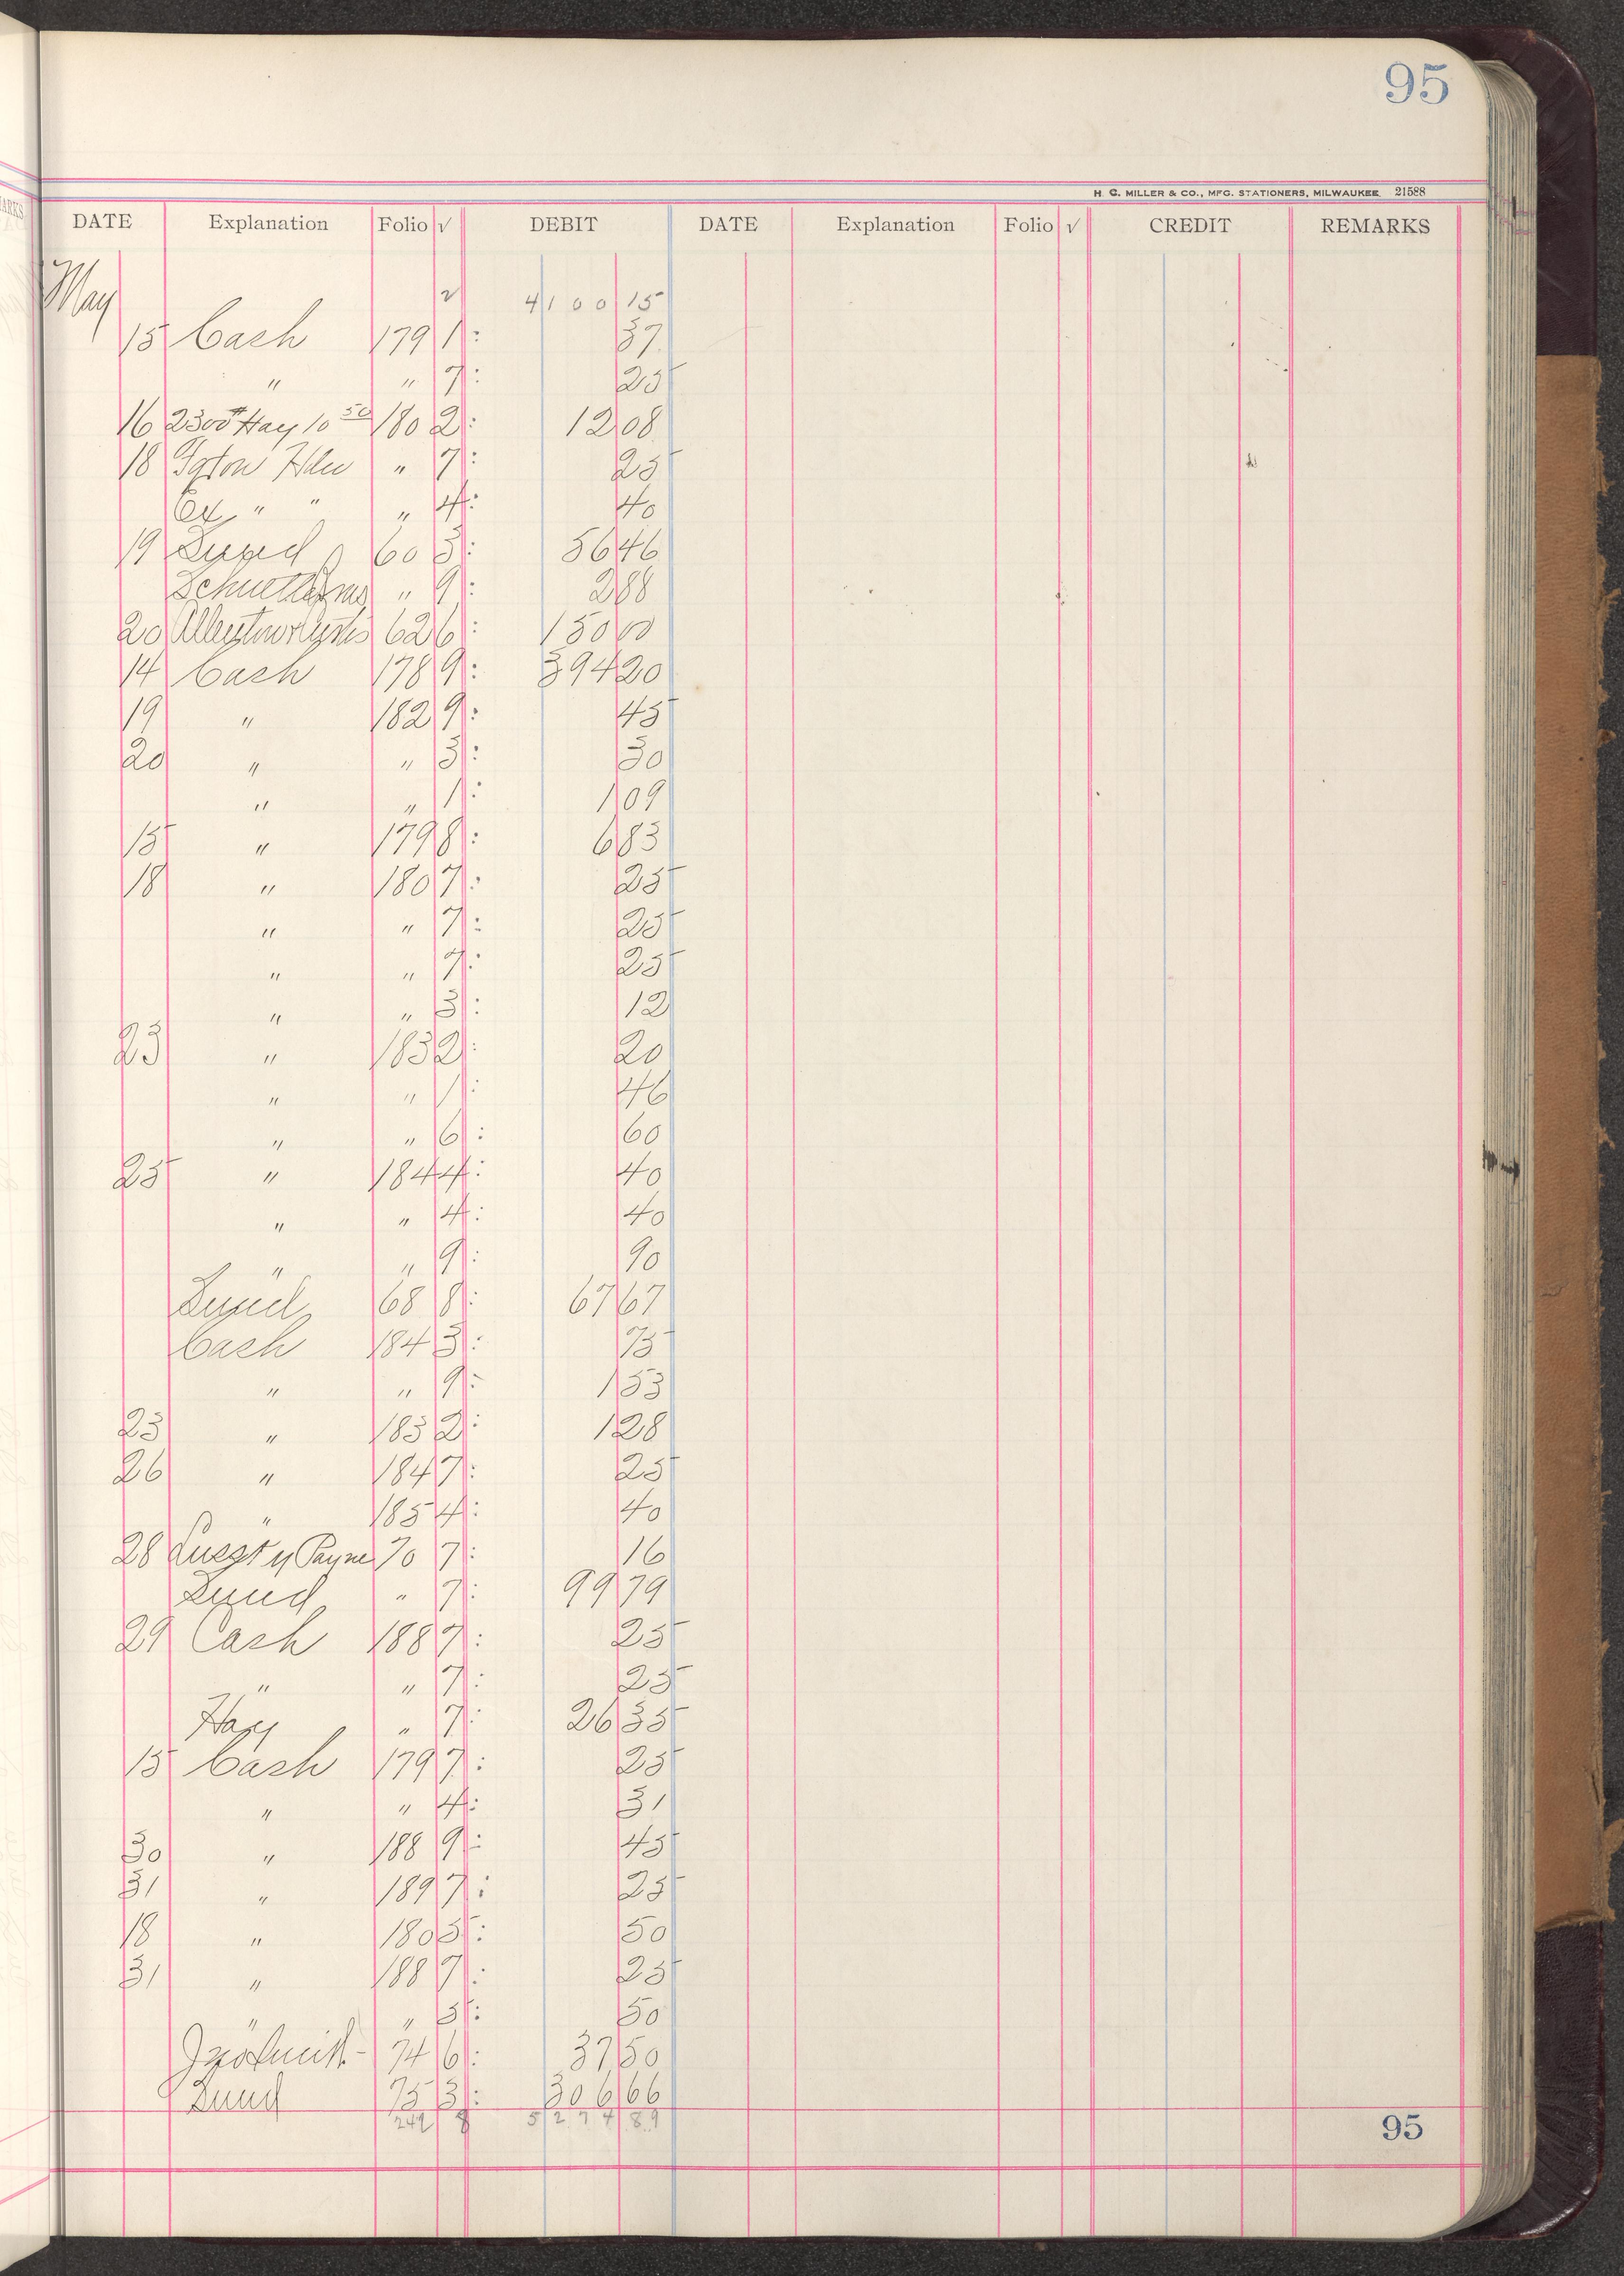 95
H. C. MILLER & CO., MFG. STATIONERS, MILWAUKEE 21588
DATE Explanation Folio √ DEBIT DATE Explanation Folio √ CREDIT REMARKS
May 2 4100 15
15 Cash 179 1: 37
" " 7: 25
16 2300# Hay 10 50 180 2: 12 08
18 " 7: 25
Ex " " " 4: 40
19 60 3: 56 46
" 9: 2 88
20 62 6: 150 00
14 Cash 178 9: 394 20
19 " 182 9: 45
20 " " 3: 30
" " 1: 1 09
15 " 179 8: 6 83
18 " 180 7: 25
" " 7: 25
" " 7: 25
" " 3: 12
23 " 183 2: 20
" " 1: 46
" " 6: 60
25 " 184 4: 40
" " 4: 40
" " 9: 90
68 8: 67 67
Cash 184 3: 75
" " 9: 1 53
23 " 183 2: 1 28
26 " 184 7: 25
" 185 4: 40
28 Payne 70 7: 16
" 7: 99 79
29 Cash 188 7: 25
" " 7: 25
Hay " 7: 26 35
15 Cash 179 7: 25
" " 4: 31
30 " 188 9: 45
31 " 189 7: 25
18 " 180 5: 50
31 " 188 7: 25
" " 5: 50
74 6: 37 50
75 3: 306 66
249 8 5274 89
95